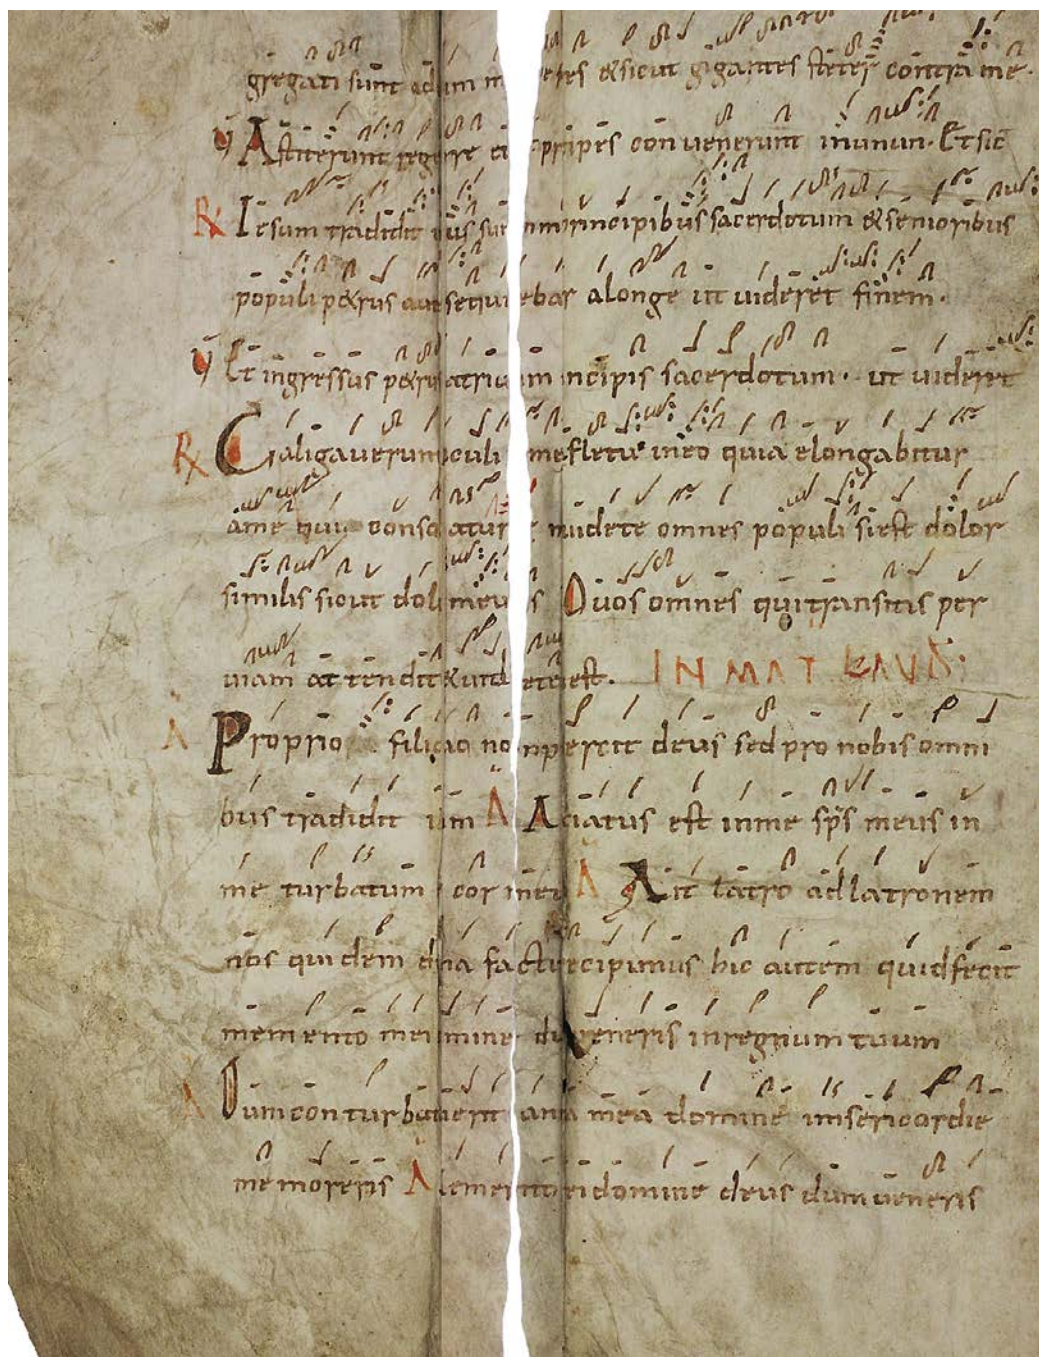 gregati sunt adum m etes &sicut gigantes steter contra me.
V Astiterunt rege rre et pripes conuenerunt inunun. Et sic
R Iesum tradidit pius sum inmprincipibus sacerdotum &senioribus
populi p&rus aut sequi ebat alonge ut uideret finem.
V Et ingressus p&rus atriu m ncipis sacerdotum. ut uideret
R Caligauerun oculi mefletu meo quia elongabitur
ame qui conso atur e uidete omnes populi siest dolor
similis sicut dol meus s O uos omnes quitransitis per
uiam attendit &uid ete est. IN MAT LAUD.
A Proprio filio no n percit deus sed pro nobis omni
bus tradidit ium A A iatus est inme sps meus in
me turbatum cor meu A Ait latro adlatronem
nos quidem dna facti recipimus hic autem quidfecit
memento mei mine du ueneris inregnum tuum
A Dum conturbata erit ania mea domine misericordie
memoreris A Memento ei domine deus dum ueneris